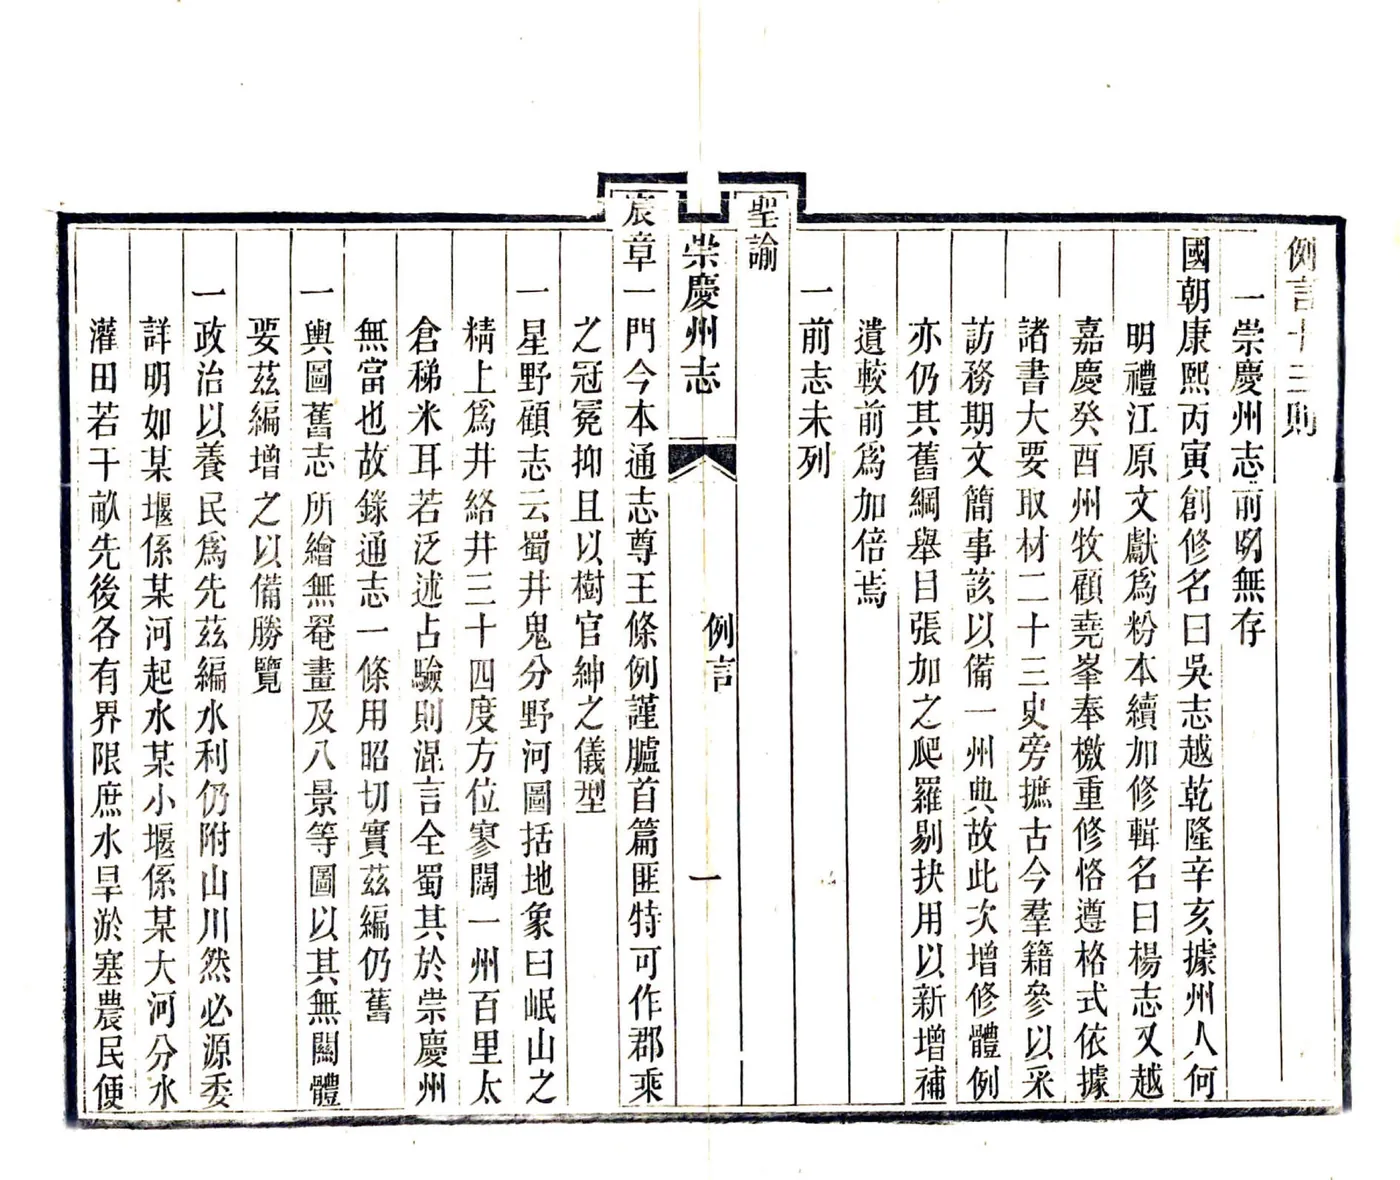 例言十三則
一崇慶州志前明無存
國朝康熙丙寅創修名曰吳志越乾隆辛亥據州人何
明禮江原文獻爲粉本續加修輯名曰楊志又越
嘉慶癸酉州牧顧堯峯奉檄重修恪遵格式依據
諸書大要取材二十三史旁摭古今羣籍參以采
訪務期文簡事該以備一州典故此次增修體例
亦仍其舊綱舉目張加之爬羅剔抉用以新增補
遺較前爲加倍焉
一前志未列
聖諭
崇慶州志
例言
一
宸章一門今本通志尊王條例謹臚首篇匪特可作郡乘
之冠冕抑且以樹官紳之儀型
一星野顧志云蜀井鬼分野河圖括地象曰岷山之
精上爲井絡井三十四度方位寥闊一州百里太
倉稊米耳若泛述占驗則混言全蜀其於崇慶州
無當也故錄通志一條用昭切實茲編仍舊
一輿圖舊志所繪無罨畫及八景等圖以其無關體
要茲編增之以備勝覽
一政治以養民爲先茲編水利仍附山川然必源委
詳明如某堰係某河起水某小堰係某大河分水
灌田若干畝先後各有界限庶水旱淤塞農民便